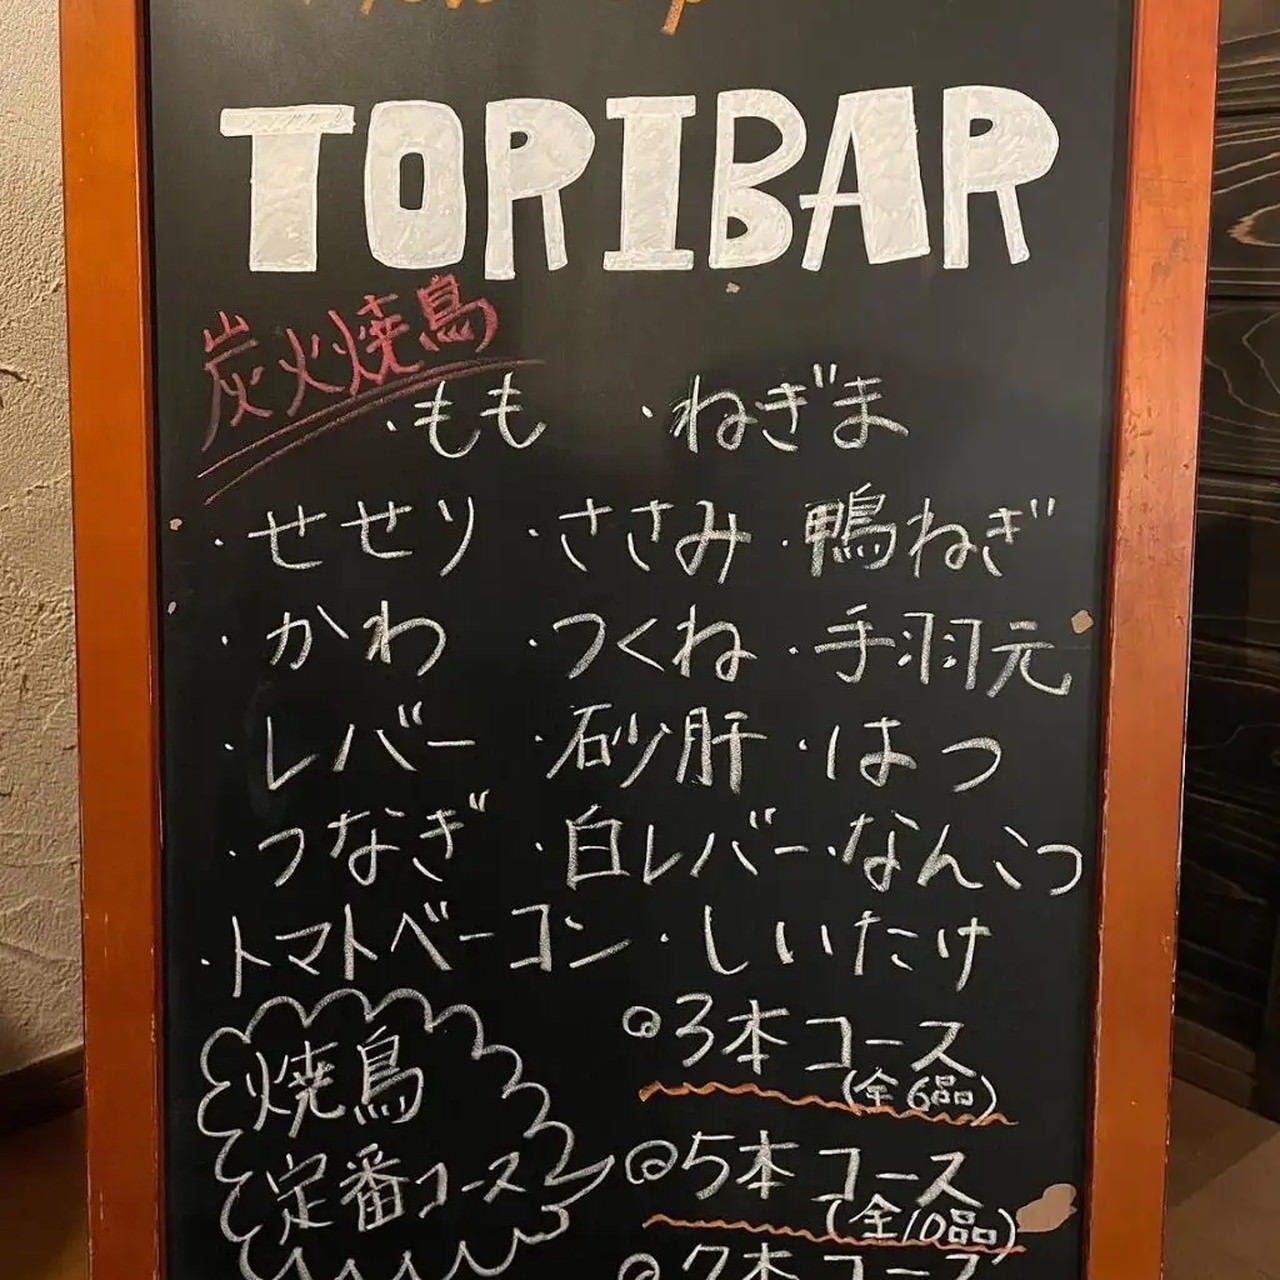 TORIBAR
炭火焼鳥
・もも ・ねぎま
・せせり ・ささみ ・鴨ねぎ
・かわ ・つくね ・手羽元
・レバー ・砂肝 ・はつ
・つなぎ ・白レバー ・なんこつ
・トマトベーコン ・しいたけ
焼鳥
定番コース
◎3本コース
(全6品)
◎5本コース
(全10品)
◎7本コース